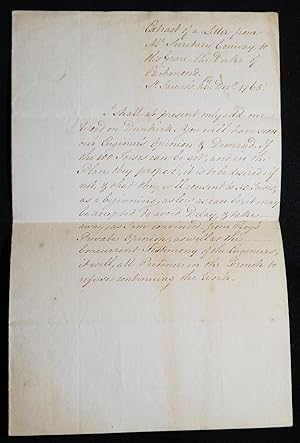 Extract of a Letter from
Mr. Secretary Conway, to
His Grace the Duke of
Richmond.
St. James's 26 Decr. 1765.
I shall at present only add one
Word on Dunkirk. You will have seen
our Engineers Opinion & Demand. If
the 100 Toises can be got, and in the
Place they propose, it is to be desired; if
not, & that they will consent to 50 Toises,
as a beginning, as low as can be it may
be accepted to avoid Delay, & take
away, as I am convinced from
Private Opinion, as well as the
Concurrent Testimony of the Engineers,
it will, all Pretence in the French to
refuse continuing the Work.